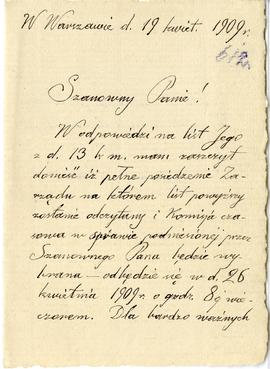 W Warszawie d. 19 kwiet. 1909 r.
Szanowny Panie!
W odpowiedzi na list Jego
z d. 13 b m. mam zaszczyt
donieść iż pełne posiedzenie Za-
rządu na którem list powyższy
zostanie odczytany i Komisja cza-
sowa w sprawie podniesionej przez
Szanownego Pana będzie wy-
brana – odbędzie się w d. 26
kwietnia 1909 r. o godz. 8 ej wie-
czorem. Dla bardzo ważnych